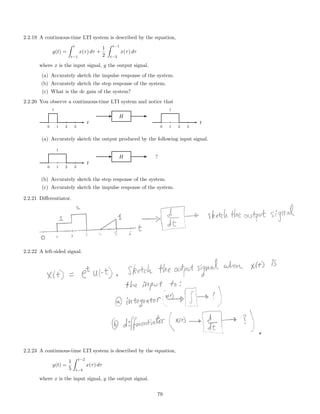 2.2.19 A continuous-time LTI system is described by the equation,
y(t) = ∫_{t−1}^{t} x(τ) dτ + 1/2 ∫_{t−3}^{t−1} x(τ) dτ
where x is the input signal, y the output signal.
(a) Accurately sketch the impulse response of the system.
(b) Accurately sketch the step response of the system.
(c) What is the dc gain of the system?
2.2.20 You observe a continuous-time LTI system and notice that
1
H
1
0 1 2 3 t
0 1 2 3 t
(a) Accurately sketch the output produced by the following input signal.
1
H
?
0 1 2 3 t
(b) Accurately sketch the step response of the system.
(c) Accurately sketch the impulse response of the system.
2.2.21 Differentiator.
2
1
1
0
t
d/dt
sketch the output signal
2.2.22 A left-sided signal:
x(t) = e^t u(-t). Sketch the output signal when x(t) is
the input to:
(a) integrator: (x(t) → ∫ → ?)
(b) differentiator (x(t) → d/dt → ?).
2.2.23 A continuous-time LTI system is described by the equation,
where x is the input signal, y the output signal.
78